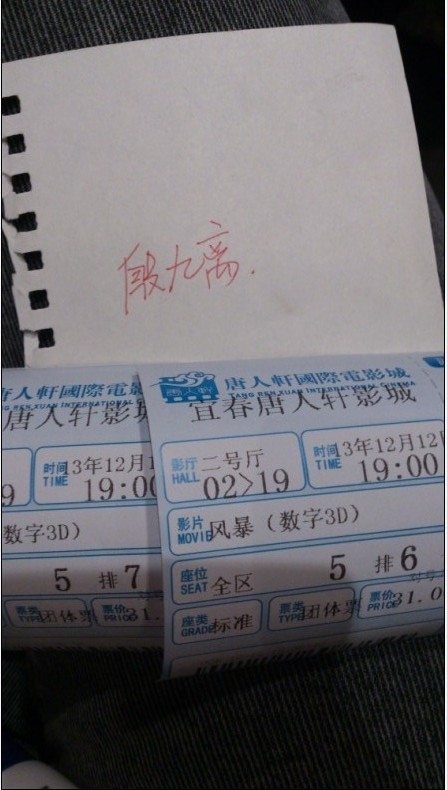 段九离.
唐人軒國際電影城
TANG REN XUAN INTERNATIONAL CINEMA
唐人軒
宜春唐人轩影城
影厅 HALL 二号厅
02>19
时间 TIME 13年12月12
19:00
影片 MOVIE 风暴（数字3D）
座位 SEAT 全区 5 排 6
座类 GRADE 标准 票类 TYPE 团体票 票价 PRICE 31.0
唐人軒國際電影
REN XUAN INTERNATIONAL
唐人轩影
9 时间 TIME 13年12月1
19:00
数字3D）
5 排 7
票类 TYPE 团体票 票价 PRICE 31.